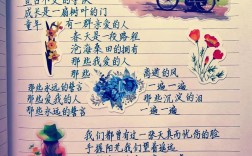 成长是一扇树叶的门
童年 有一群亲爱的人
春天是一段路程
沧海桑田的拥有
那些我爱的人
那些永远的誓言 离逝的风
那些爱我的人 一遍一遍
那些永远的誓言 那些沉寂的泪
一遍一遍
我们都曾有过一张天真而忧伤的脸
手握阳光我们望着遥远